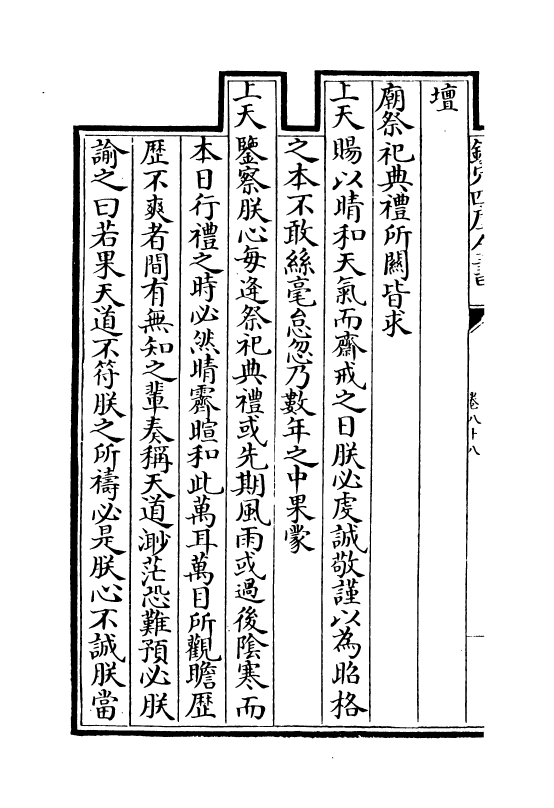 欽定四庫全書
卷八十八
壇
廟祭祀典禮所關皆求
上天賜以晴和天氣而齋戒之日朕必虔誠敬謹以為昭格
之本不敢絲毫怠忽乃數年之中果蒙
上天鑒察朕心每逢祭祀典禮或先期風雨或過後陰寒而
本日行禮之時必然晴霽暄和此萬耳萬目所觀瞻歷
歷不爽者間有無知之輩奏稱天道渺茫恐難預必朕
諭之曰若果天道不符朕之所禱必是朕心不誠朕當